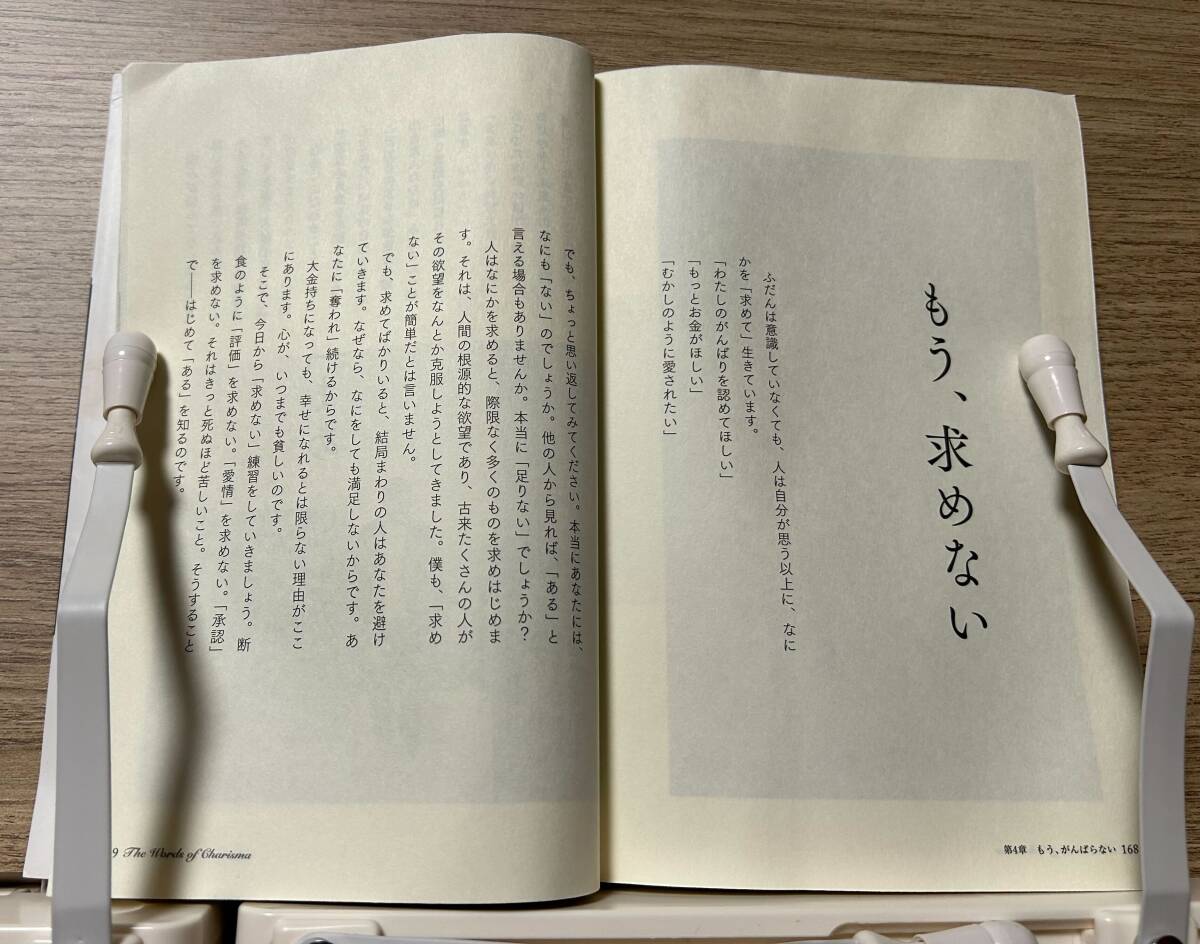 もう、求めない
ふだんは意識していなくても、人は自分が思う以上に、なに
かを「求めて」生きています。
「わたしのがんばりを認めてほしい」
「もっとお金がほしい」
「むかしのように愛されたい」
第4章　もう、がんばらない 168
でも、ちょっと思い返してみてください。本当にあなたには、
なにも「ない」のでしょうか。他の人から見れば、「ある」と
言える場合もありませんか。本当に「足りない」でしょうか？
人はなにかを求めると、際限なく多くのものを求めはじめま
す。それは、人間の根源的な欲望であり、古来たくさんの人が
その欲望をなんとか克服しようとしてきました。僕も、「求め
ない」ことが簡単だとは言いません。
でも、求めてばかりいると、結局まわりの人はあなたを避け
ていきます。なぜなら、なにをしても満足しないからです。あ
なたに「奪われ」続けるからです。
大金持ちになっても、幸せになれるとは限らない理由がここ
にあります。心が、いつまでも貧しいのです。
そこで、今日から「求めない」練習をしていきましょう。断
食のように「評価」を求めない。「愛情」を求めない。「承認」
を求めない。それはきっと死ぬほど苦しいこと。そうすること
で――はじめて「ある」を知るのです。
9 The Words of Charisma